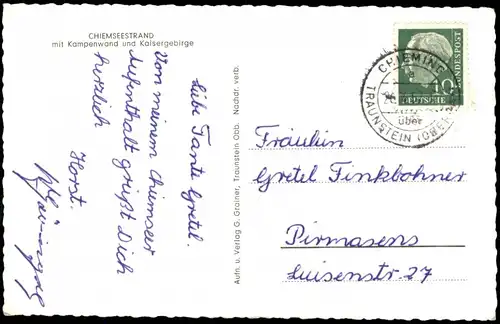 CHIEMSEESTRAND
mit Kampenwand und Kaisergebirge
Liebe Tante Gretel.
Von meinem Chiemseer
Aufenthalt grüßt Dich
herzlich
Horst.
Aufn. u. Verlag G. Grainer, Traunstein Obb. Nachdr. verb.
CHIEMING
über
TRAUNSTEIN (OBERBAY)
DEUTSCHE BUNDESPOST
10
Fräulein
Gretel Finkbohner
Pirmasens
Luisenstr. 27